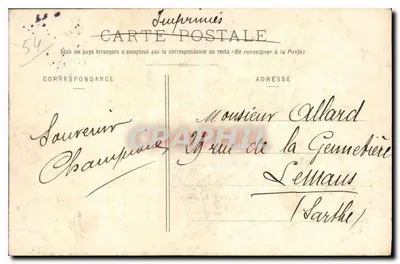 Imprimés
54
CARTE POSTALE
Tous les pays étrangers n'acceptent pas la correspondance au recto (Se renseigner à la Poste)
CORRESPONDANCE
ADRESSE
Souvenir
Monsieur Allard
29 rue de la Gennetière
Lemans
(Sarthe)